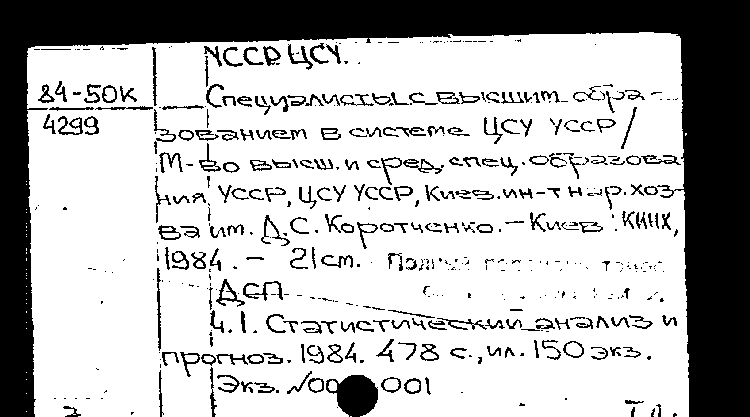 УССР. ЦСУ.
84-50к
Специалисты с высшим обра-
4299
зованием в системе ЦСУ УССР/
М-во высш. и сред. спец. образова-
ния УССР, ЦСУ УССР, Киев. ин-т нар. хоз-
ва им. Д.С. Коротченко. – Киев : КИНХ,
1984. – 21 см.
ДСП
Ч.1. Статистический анализ и
прогноз. 1984. 478 с., ил. 150 экз.
Экз. №00 001